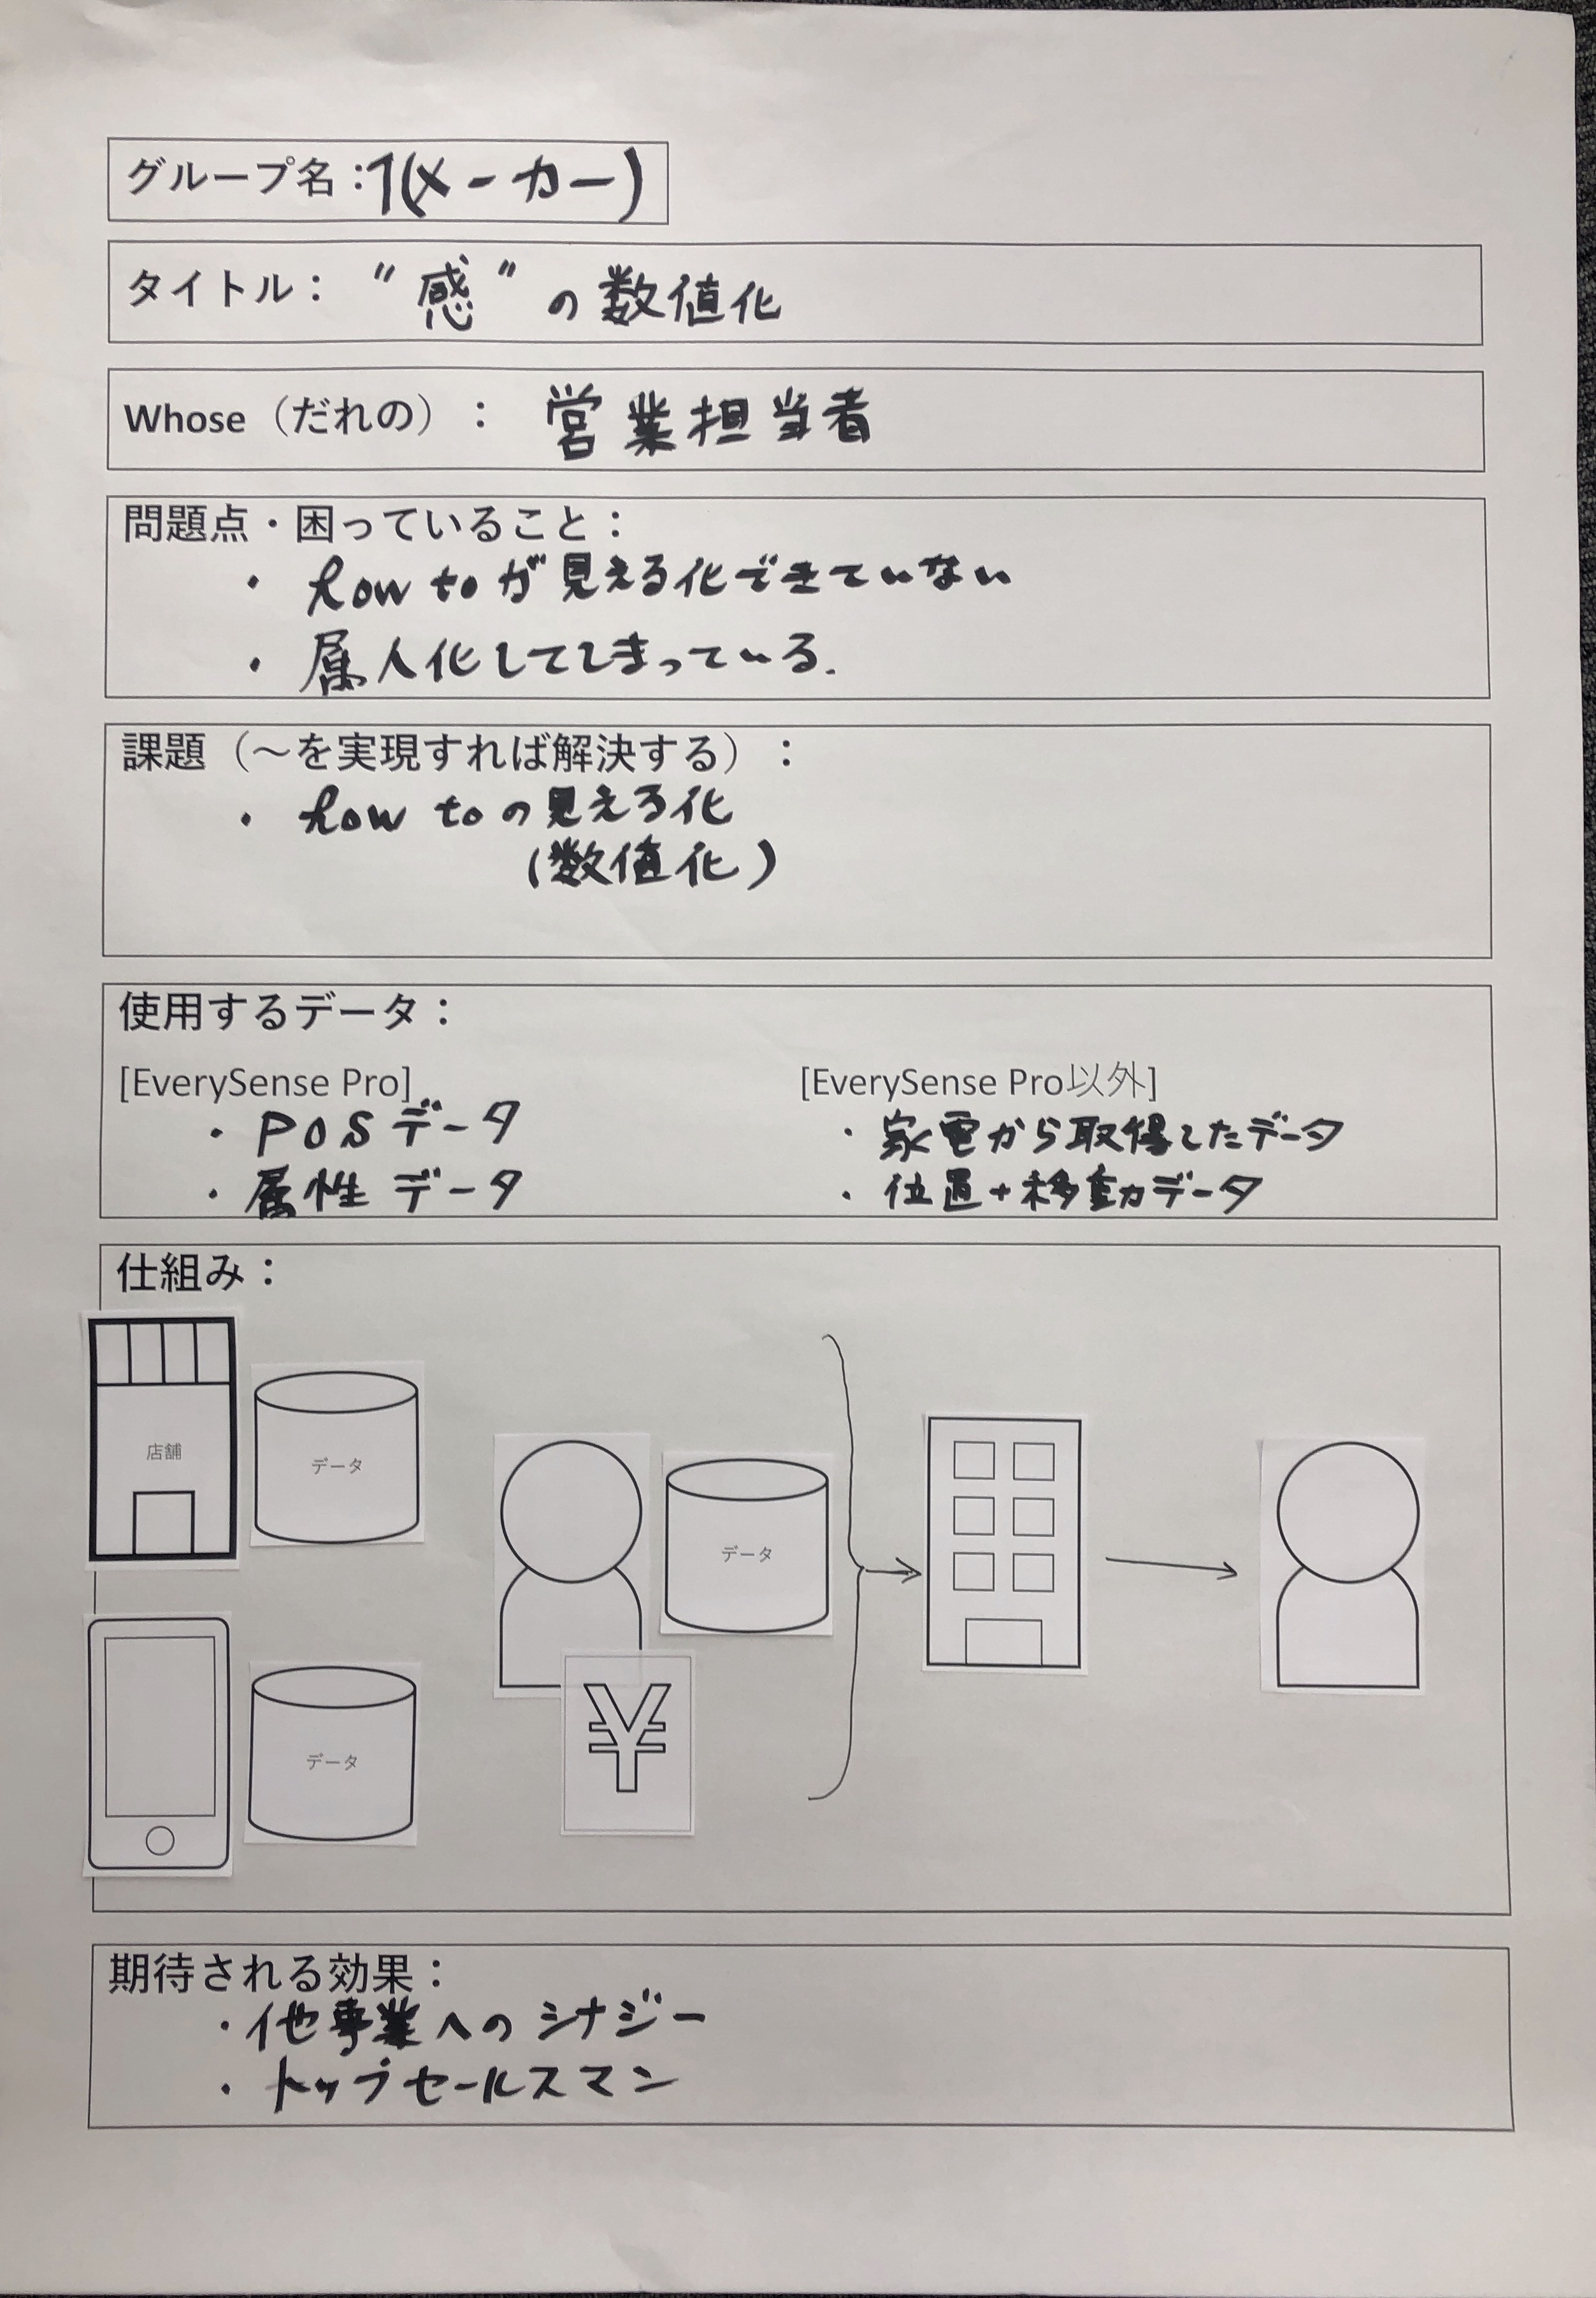 グループ名：1(メーカー)
タイトル： "感"の数値化
Whose（だれの）： 営業担当者
問題点・困っていること：
・ how toが見える化できていない
・ 属人化してしまっている.
課題（～を実現すれば解決する）：
・ how toの見える化
(数値化)
使用するデータ：
[EverySense Pro]
・ POSデータ
・ 属性データ
[EverySense Pro以外]
・ 家電から取得したデータ
・ 位置+移動データ
仕組み：
店舗
データ
データ
データ
¥
期待される効果：
・他事業へのシナジー
・ トップセールスマン